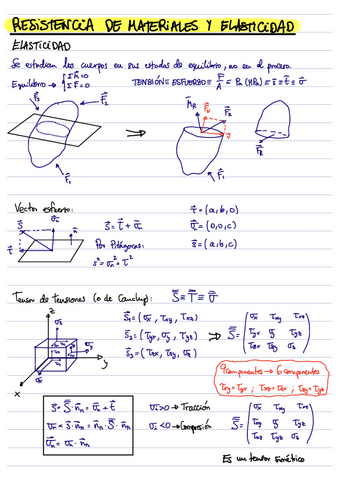 RESISTENCIA DE MATERIALES Y ELASTICIDAD
ELASTICIDAD
Se estudian los cuerpos en sus estados de equilibrio, no en el proceso.
Equilibrio → { ΣM̄=0
ΣF̄=0
TENSIÓN ≡ ESFUERZO ≡ F/A = Pa (MPa)
F̄₂
F̄₁
M̄R
F̄R
F̄₁
F̄R
Vector esfuerzo:
s̄ = t̄ + σ̄n
Por Pitágoras:
s² = σn² + τ²
t̄ = (a,b,0)
σ̄ = (0,0,c)
s̄ = (a,b,c)
Tensor de tensiones (o de Cauchy): S̄ ≡ T̄ ≡ σ̄
z
y
x
s̄₁ = (σx, τxy, τxz)
s̄₂ = (τyx, σy, τyz)
s̄₃ = (τzx, τzy, σz)
⇒ S̄ = ( σx τxy τxz
τyx σy τyz
τzx τzy σz )
9 componentes → 6 componentes
τxy = τyx ; τxz = τzx ; τzy = τyz
s̄ = S̄ · ūn = σ̄n + t̄
σn = s̄ · ūn = ūn · S̄ · ūn
σ̄n = σn · ūn
σn > 0 → Tracción
σn < 0 → Compresión
S̄ = ( σx τxy τxz
τxy σy τyz
τxz τyz σz )
Es un tensor simétrico